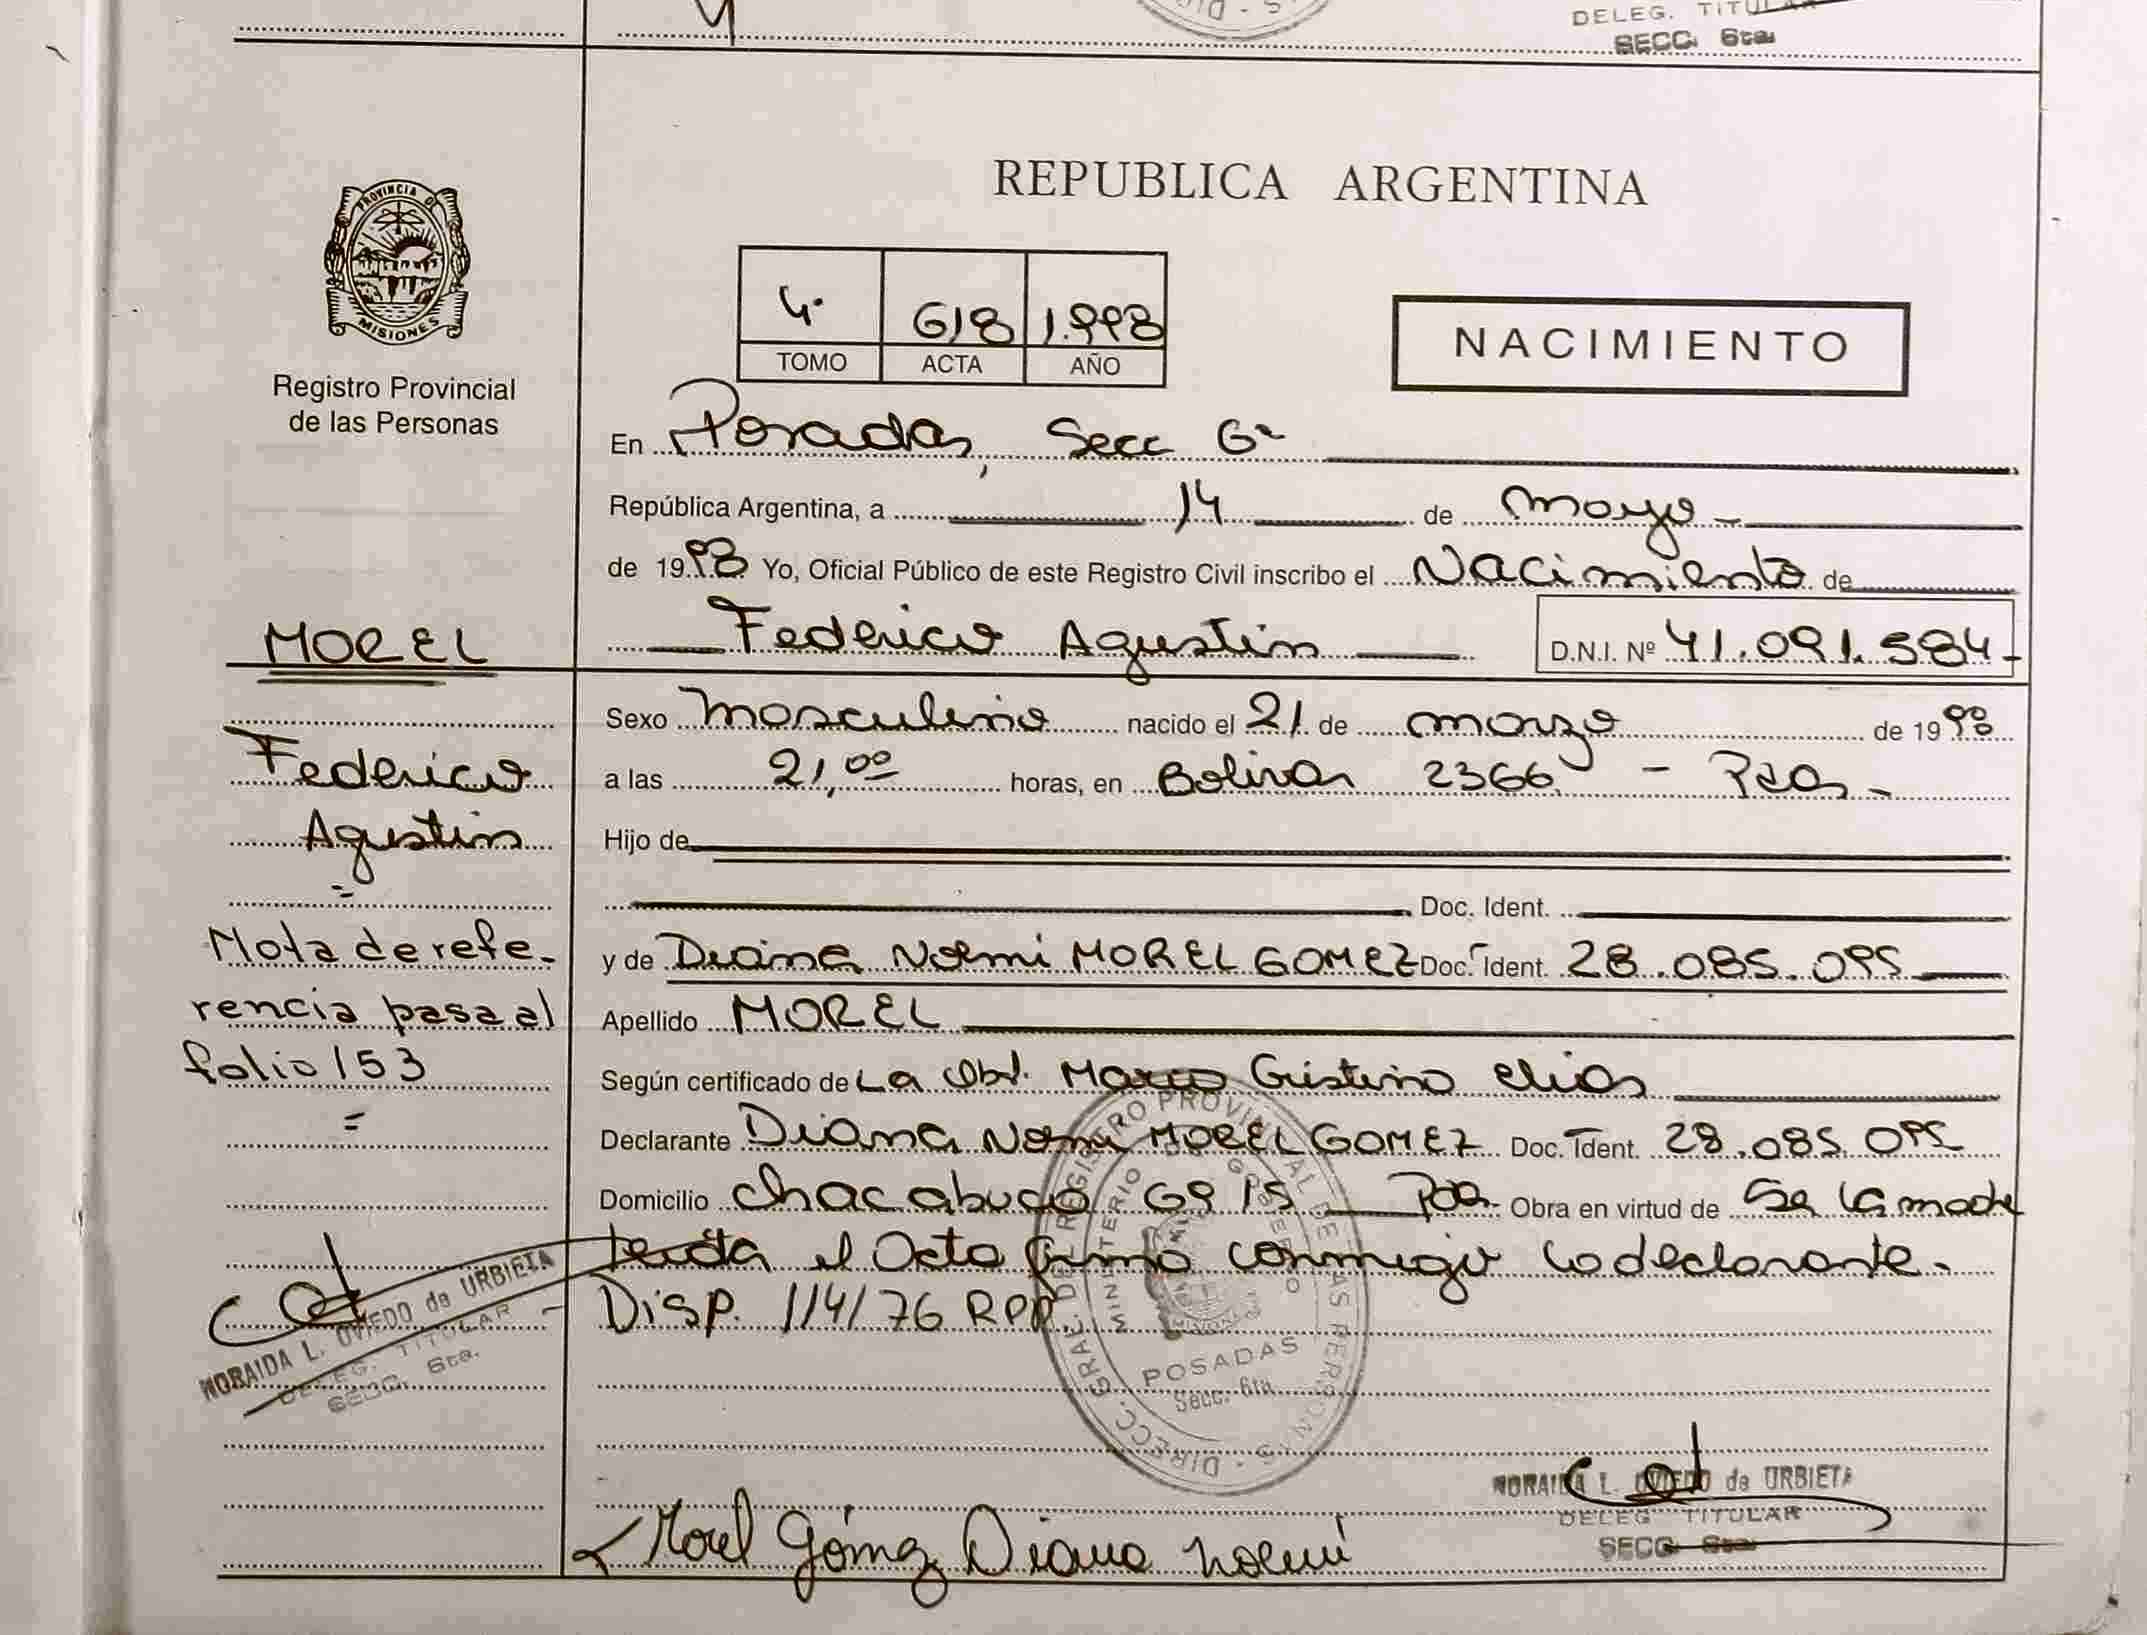 DELEG. TITULAR
SECC. 6ta.
PROVINCIA DE
MISIONES
Registro Provincial
de las Personas
REPUBLICA ARGENTINA
4º 618 1.998
TOMO ACTA AÑO
NACIMIENTO
En Posadas, Secc 6ª
República Argentina, a 14 de mayo
de 1998 Yo, Oficial Público de este Registro Civil inscribo el Nacimiento de
Federico Agustin D.N.I. Nº 41.091.584
MOREL
Sexo Masculino nacido el 21 de marzo de 1998
Federico
a las 21,00 horas, en Bolivar 2366 - Pdas
Agustin
Hijo de
Doc. Ident.
Nota de refe-
y de Diana Noemi MOREL GOMEZ Doc. Ident. 28.085.095
rencia pasa al
Apellido MOREL
folio 153
Según certificado de La Obst. Maria Cristina Elias
Declarante Diana Noemi MOREL GOMEZ Doc. Ident. 28.085.095
Domicilio Chacabuco 6915 Pdas Obra en virtud de Ser la madre
el Acta firma conmigo la declarante.
Disp. 114/76 RPP.
NORAIDA L. OVIEDO de URBIETA
DELEG. TITULAR
SECC. 6ta.
DIRECC. GRAL. DEL REGISTRO PROVINCIAL DE LAS PERSONAS
MINISTERIO DE GOBIERNO
MISIONES
POSADAS
Secc. 6ta.
NORAIDA L. OVIEDO de URBIETA
DELEG. TITULAR
SECC. 6ta.
Morel Gómez Diana Noemí